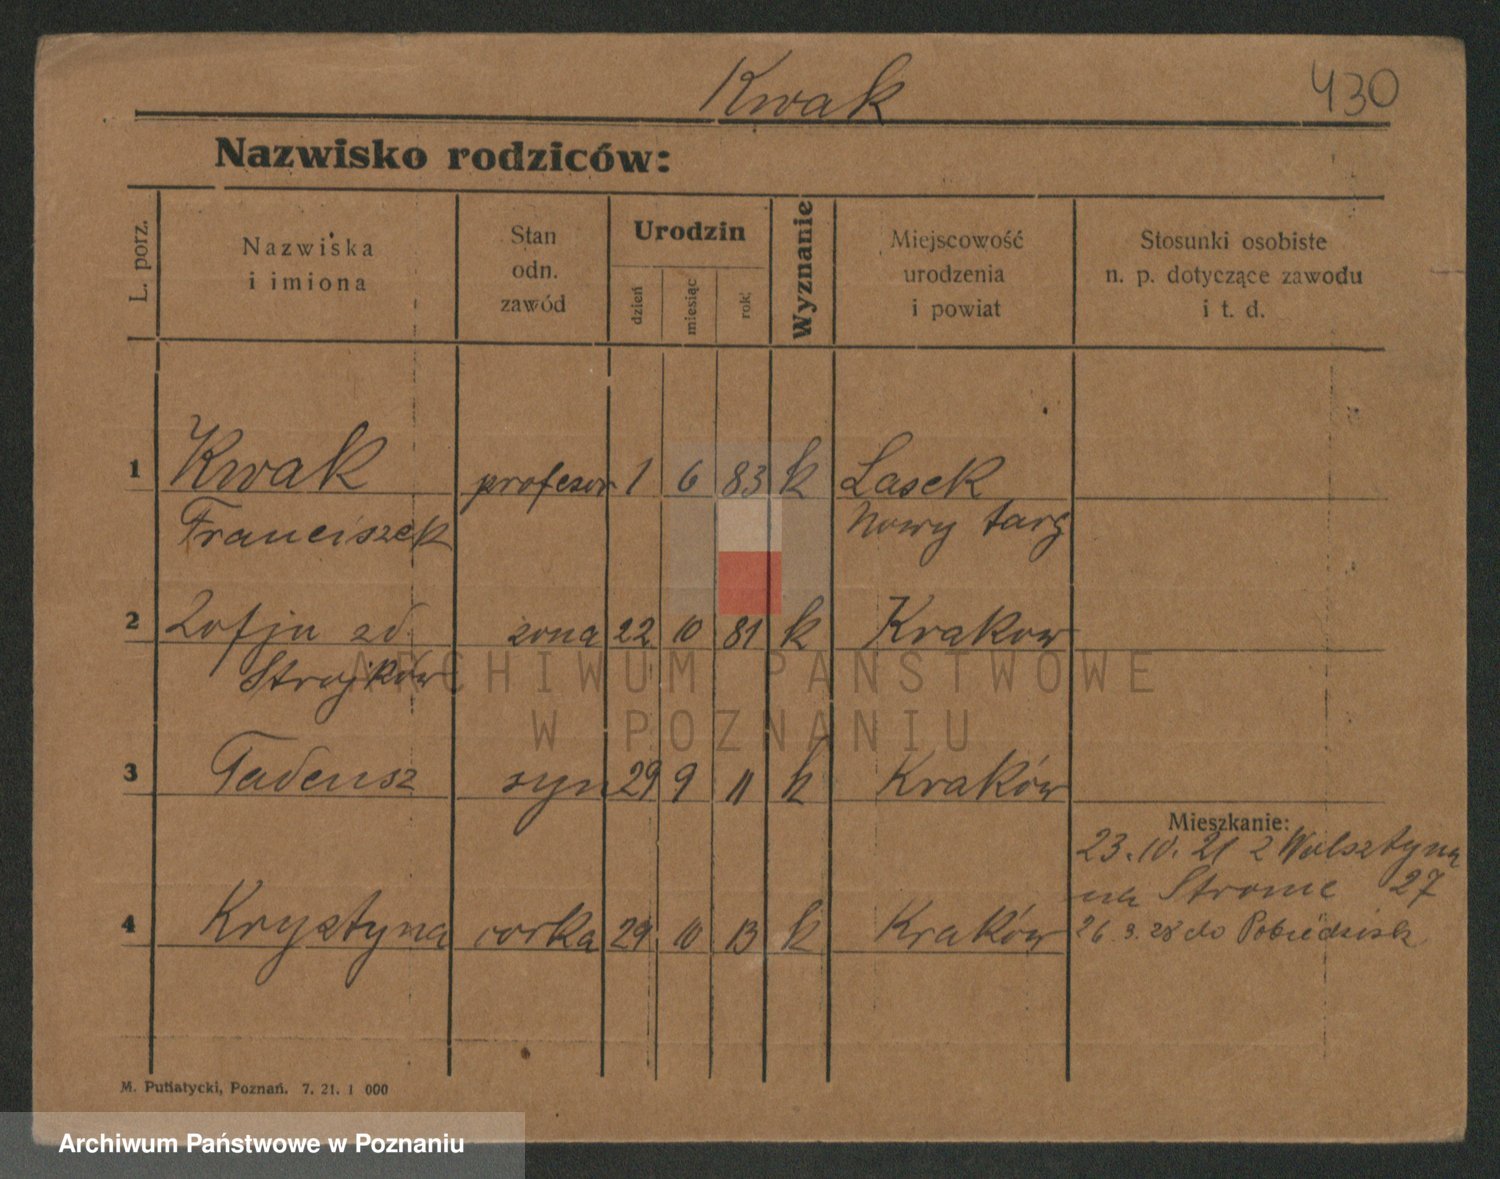 Kwak 430
Nazwisko rodziców:
L. porz.
Nazwiska
i imiona
Stan
odn.
zawód
Urodzin
dzień miesiąc rok
Wyznanie
Miejscowość
urodzenia
i powiat
Stosunki osobiste
n. p. dotyczące zawodu
i t. d.
1 Kwak profesor 1 6 83 k Lasek
Franciszek Nowy targ
2 Zofja zd żona 22 10 81 k Krakow
Strojków
3 Tadeusz syn 29 9 11 k Kraków
Mieszkanie:
23.10.21 z Wolsztyna
na Strome 27
4 Krystyna corka 29 10 13 k Kraków
26.9.28 do Pobiedzisk
M. Putiatycki, Poznań. 7. 21. 1 000
ARCHIWUM PAŃSTWOWE
W POZNANIU
Archiwum Państwowe w Poznaniu